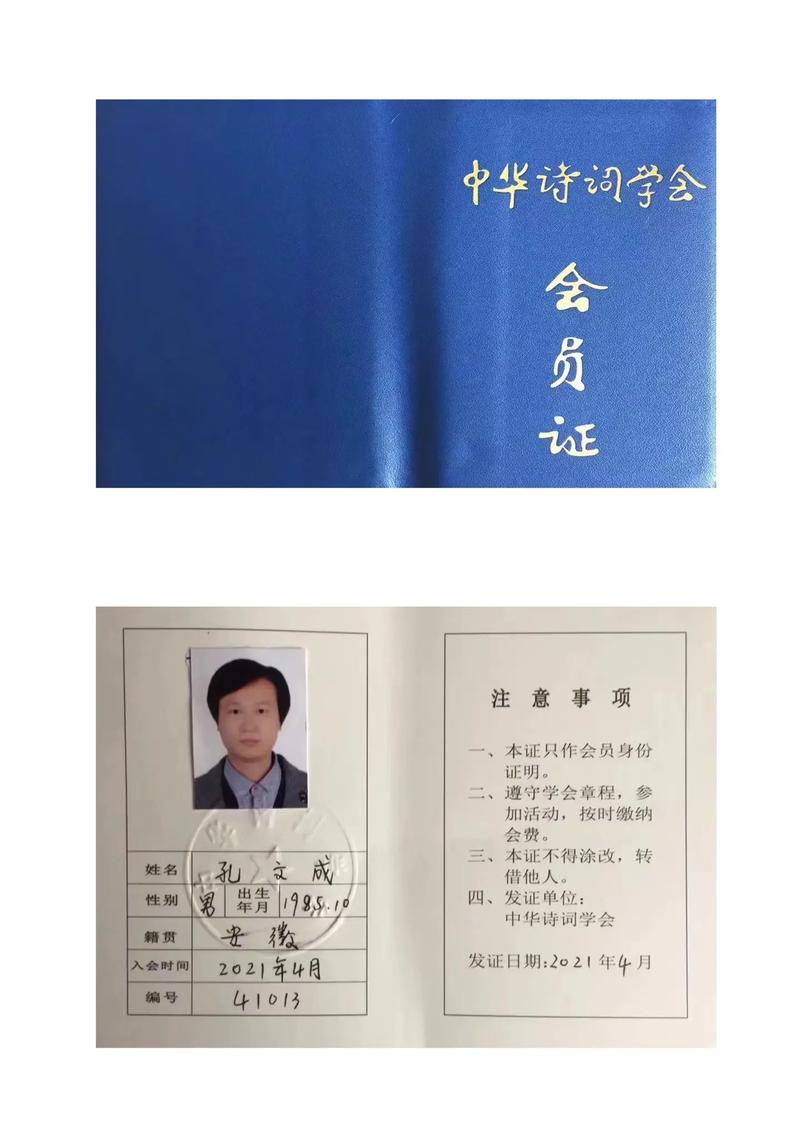 中华诗词学会
会
员
证
姓名 孔文成
性别 男 出生年月 1985.10
籍贯 安徽
入会时间 2021年4月
编号 41013
注意事项
一、本证只作会员身份
证明。
二、遵守学会章程，参
加活动，按时缴纳
会费。
三、本证不得涂改，转
借他人。
四、发证单位：
中华诗词学会
发证日期:2021年4月